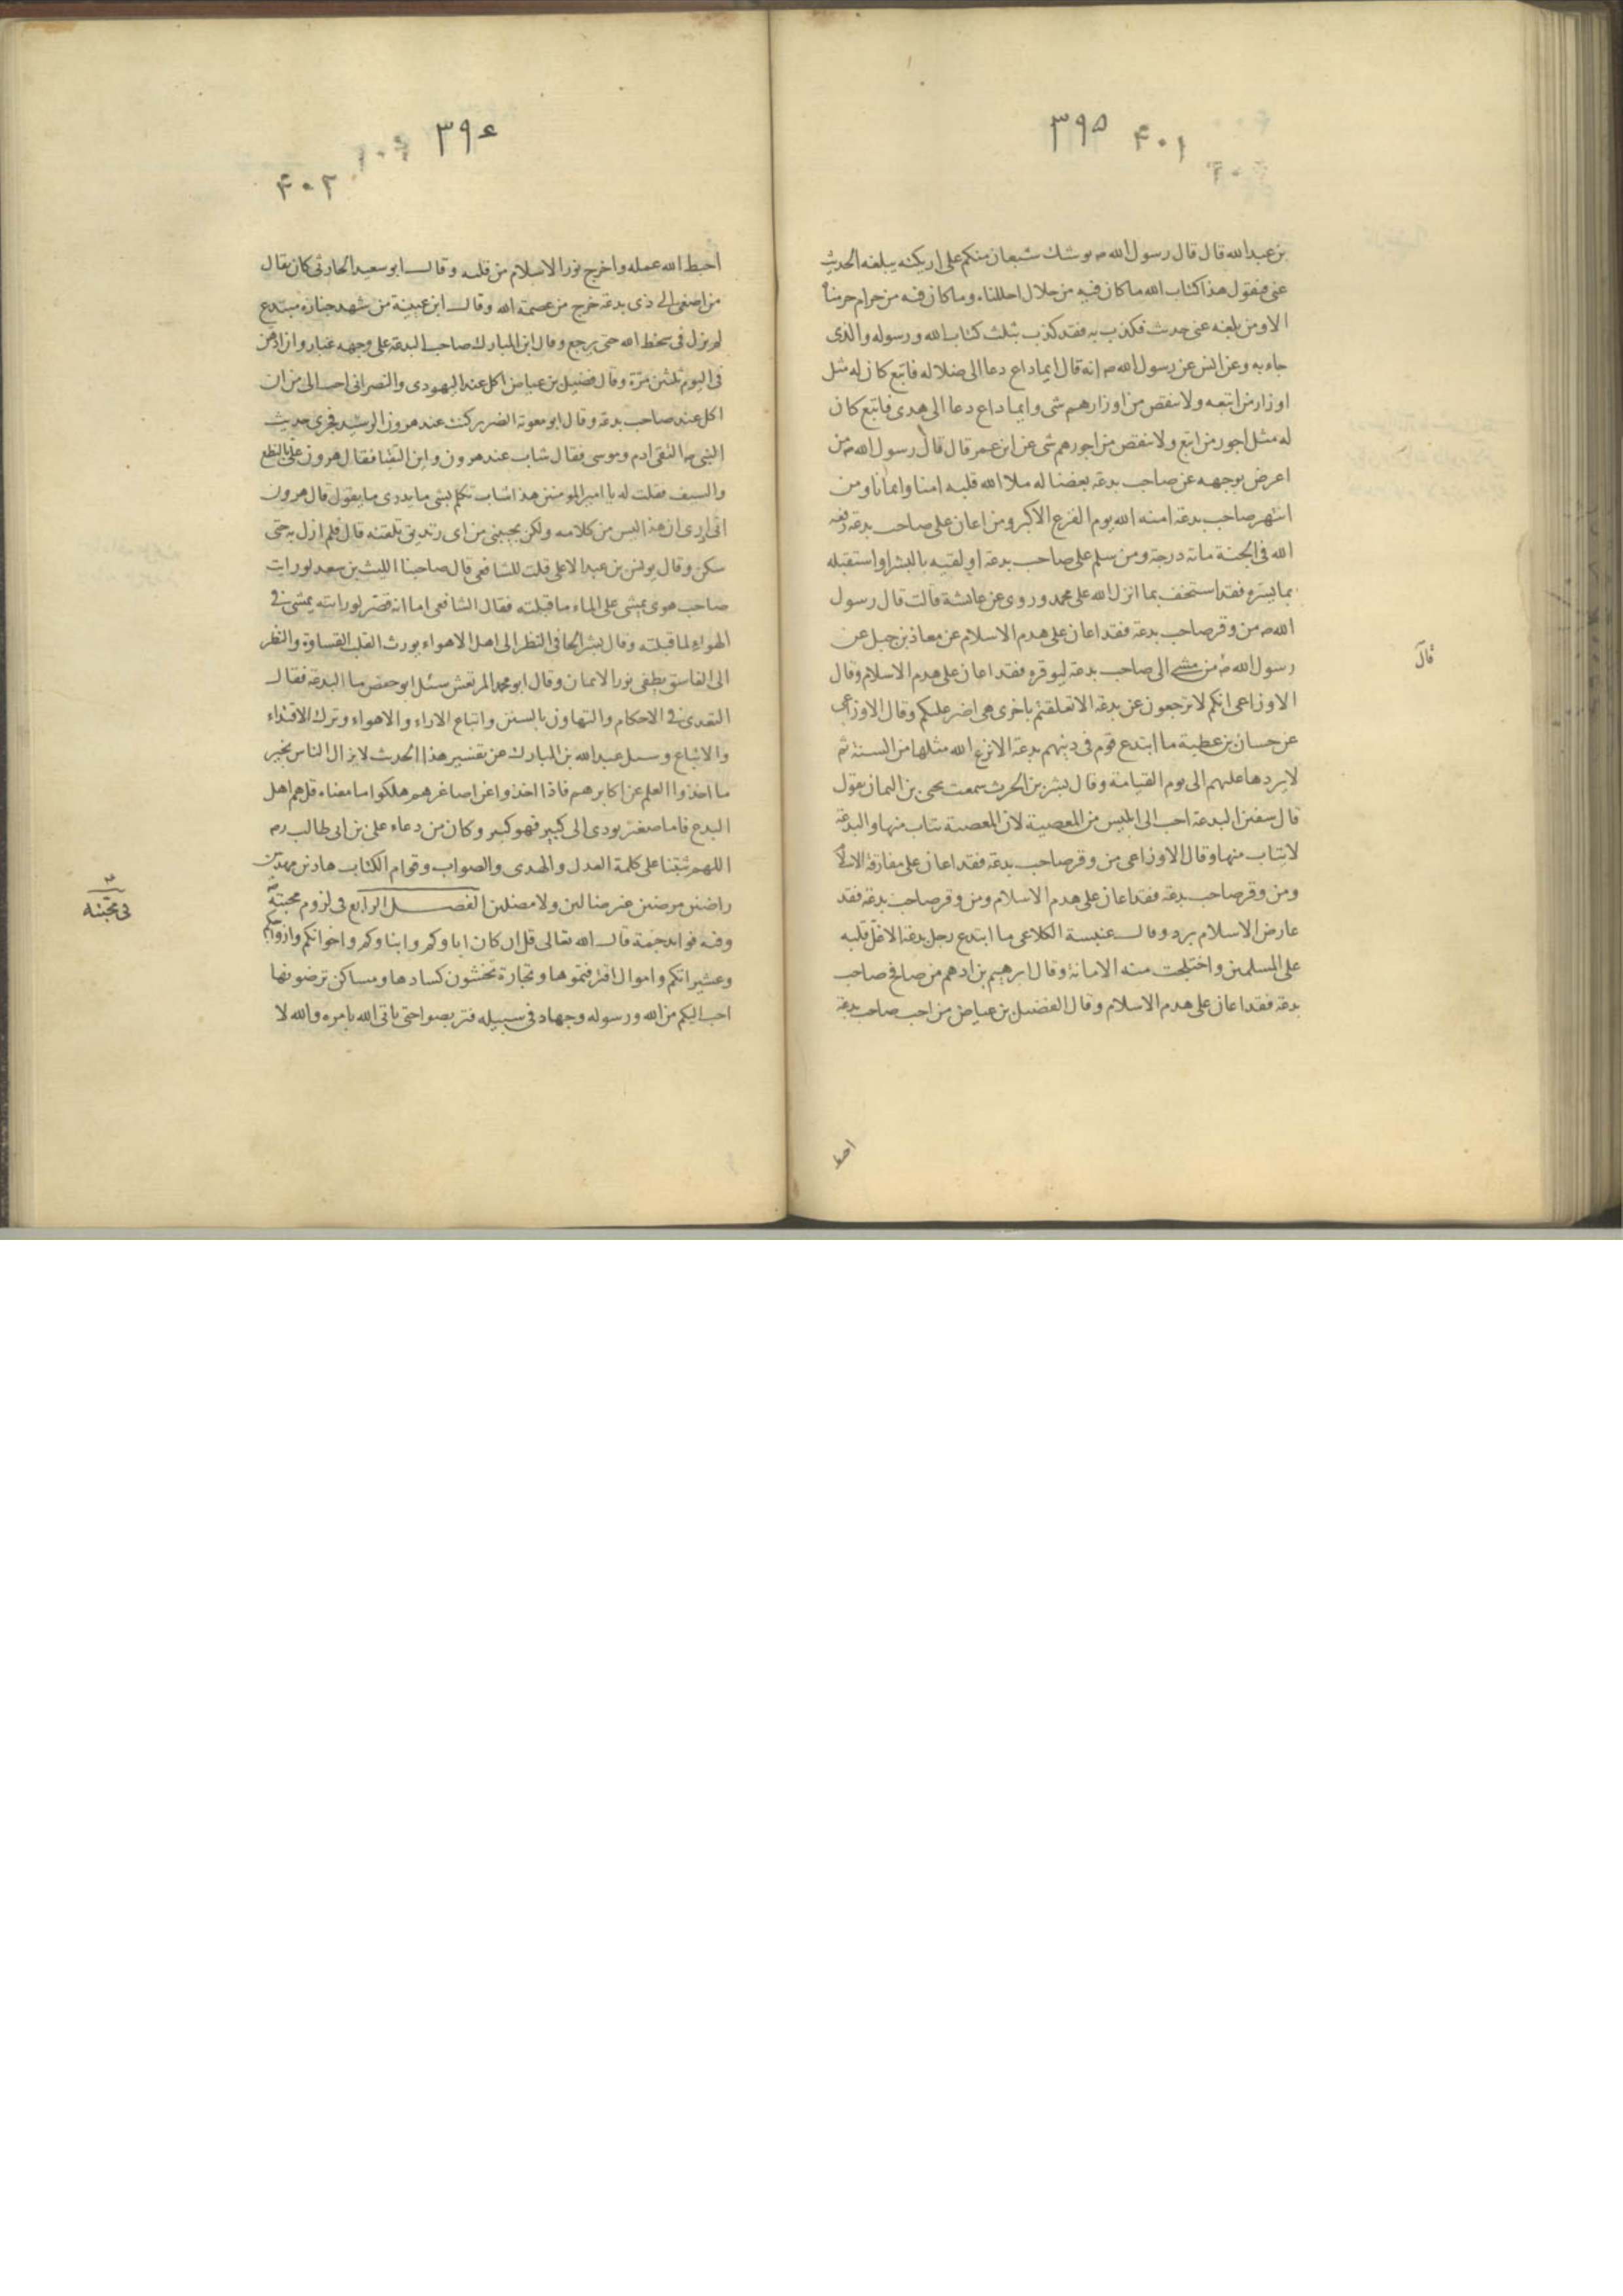 ٣٩٥ ۴٠١
بن عبد الله قال قال رسول الله ص يوشك شبعان منكم على اريكته يبلغه الحديث
عنى فيقول هذا كتاب الله ما كان فيه من حلال احللناه وما كان فيه من حرام حرمناه
الا ومن بلغه عنى حديث فكذب به فقد كذب بثلث كتاب الله ورسوله والذى
جاء به وعن انس عن رسول الله ص انه قال ايما داع دعا الى ضلاله فاتبع كان له مثل
اوزار من اتبعه ولا ينقص من اوزارهم شى وايما داع دعا الى هدى فاتبع كان
له مثل اجور من اتبع ولا ينقص من اجورهم شى عن ابن عمر قال قال رسول الله ص من
اعرض بوجهه عن صاحب بدعة بغضا له ملا الله قلبه امنا وايمانا ومن
انتهر صاحب بدعة امنه الله يوم الفزع الاكبر ومن اعان على صاحب بدعة رفعه
الله فى الجنة ماته درجة ومن سلم على صاحب بدعة او لقيه بالبشر او استقبله
بما يسره فقد استخف بما انزل الله على محمد وروى عن عايشة قالت قال رسول
الله ص من وقر صاحب بدعة فقد اعان على هدم الاسلام عن معاذ بن جبل عن
رسول الله ص من مشى الى صاحب بدعة ليوقره فقد اعان على هدم الاسلام وقال
قال
الاوزاعى انكم لا ترجعون عن بدعة الا تعلقتم باخرى هى اضر عليكم وقال الاوزاعى
عن حسان بن عطية ما ابتدع قوم فى دينهم بدعة الا نزع الله مثلها من السنة ثم
لا يردها عليهم الى يوم القيامة وقال بشر بن الحرث سمعت يحيى بن اليمان يقول
قال سفين البدعة احب الى ابليس من المعصية لان المعصية يتاب منها والبدعة
لا يتاب منها وقال الاوزاعى من وقر صاحب بدعة فقد اعان على مفارقة الاسلام
ومن وقر صاحب بدعة فقد اعان على هدم الاسلام ومن وقر صاحب بدعة فقد
عارض الاسلام برد وقال عنبسة الكلاعى ما ابتدع رجل بدعة الا غل قلبه
على المسلمين واختلجت منه الامانة وقال ابرهيم بن ادهم من صافح صاحب
بدعة فقد اعان على هدم الاسلام وقال الفضيل بن عياض من احب صاحب بدعة
احبط
٣٩۶
۴٠٢
احبط الله عمله واخرج نور الاسلام من قلبه وقال ابو سعيد الحارثى كان يقال
من اصغى الى ذى بدعة خرج من عصمة الله وقال ابن عيينة من شهد جنازه مبتدع
لم يزل فى سخط الله حتى يرجع وقال ابن المبارك صاحب البدعة على وجهه غبار وان ادهن
فى اليوم ثلثين مرة وقال فضيل بن عياض اكل عند اليهودى والنصرانى احب الى من ان
اكل عند صاحب بدعة وقال ابو معوية الضرير كنت عند هرون الرشيد فجرى حديث
النبى ص التقى ادم وموسى فقال شاب عند هرون واين التقيا فقال هرون على بالنطع
والسيف فقلت له يا امير المومنين هذا شاب تكلم بشى ما يدرى ما يقول قال هرون
انى ادرى ان هذا ليس من كلامه ولكن يجيبنى من اى زنديق تلقنه قال فلم ازل به حتى
سكن وقال يونس بن عبد الاعلى قلت للشافعى قال صاحبنا الليث بن سعد لو رايت
صاحب هوى يمشى على الماء ما قبلته فقال الشافعى اما انه قصر لو رايته يمشى فى
الهواء لما قبلته وقال بشر الحافى النظر الى اهل الاهواء يورث القلب القساوة والنظر
الى الفاسق يطفى نور الايمان وقال ابو محمد المرتعش سئل ابو حفص ما البدعة فقال
التعدى فى الاحكام والتهاون بالسنن واتباع الاراء والاهواء وترك الاقتداء
والاتباع وسئل عبد الله بن المبارك عن تفسير هذا الحديث لا يزال الناس بخير
ما اخذوا العلم عن اكابرهم فاذا اخذوا عن اصاغرهم هلكوا ما معناه قال هم اهل
البدع فاما صغير يودى الى كبير فهو كبير وكان من دعاء على بن ابى طالب رم
اللهم ثبتنا على كلمة العدل والهدى والصواب وقوام الكتاب هادين مهديين
راضين مرضين غير ضالين ولا مضلين الفصل الرابع فى لزوم محبته ص
فى محبته
وفيه فوايد جمة قال الله تعالى قل ان كان اباوكم وابناوكم واخوانكم وازواجكم
وعشيراتكم واموال اقترفتموها وتجارة تخشون كسادها ومساكن ترضونها
احب اليكم من الله ورسوله وجهاد فى سبيله فتربصوا حتى ياتى الله بامره والله لا